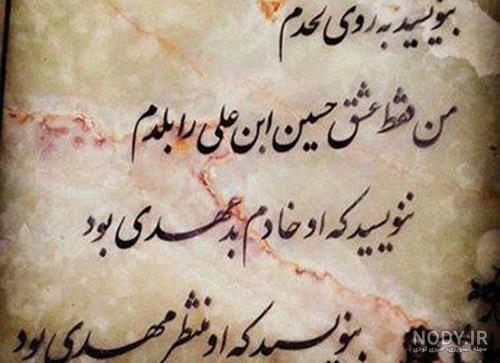 بنویسید به روی لحدم
من فقط عشق حسین ابن علی را بلدم
ننویسید که او خادم بدعهدی بود
بنویسید که او منتظر مهدی بود
NODY.IR
مجله تصویری خبری نودی